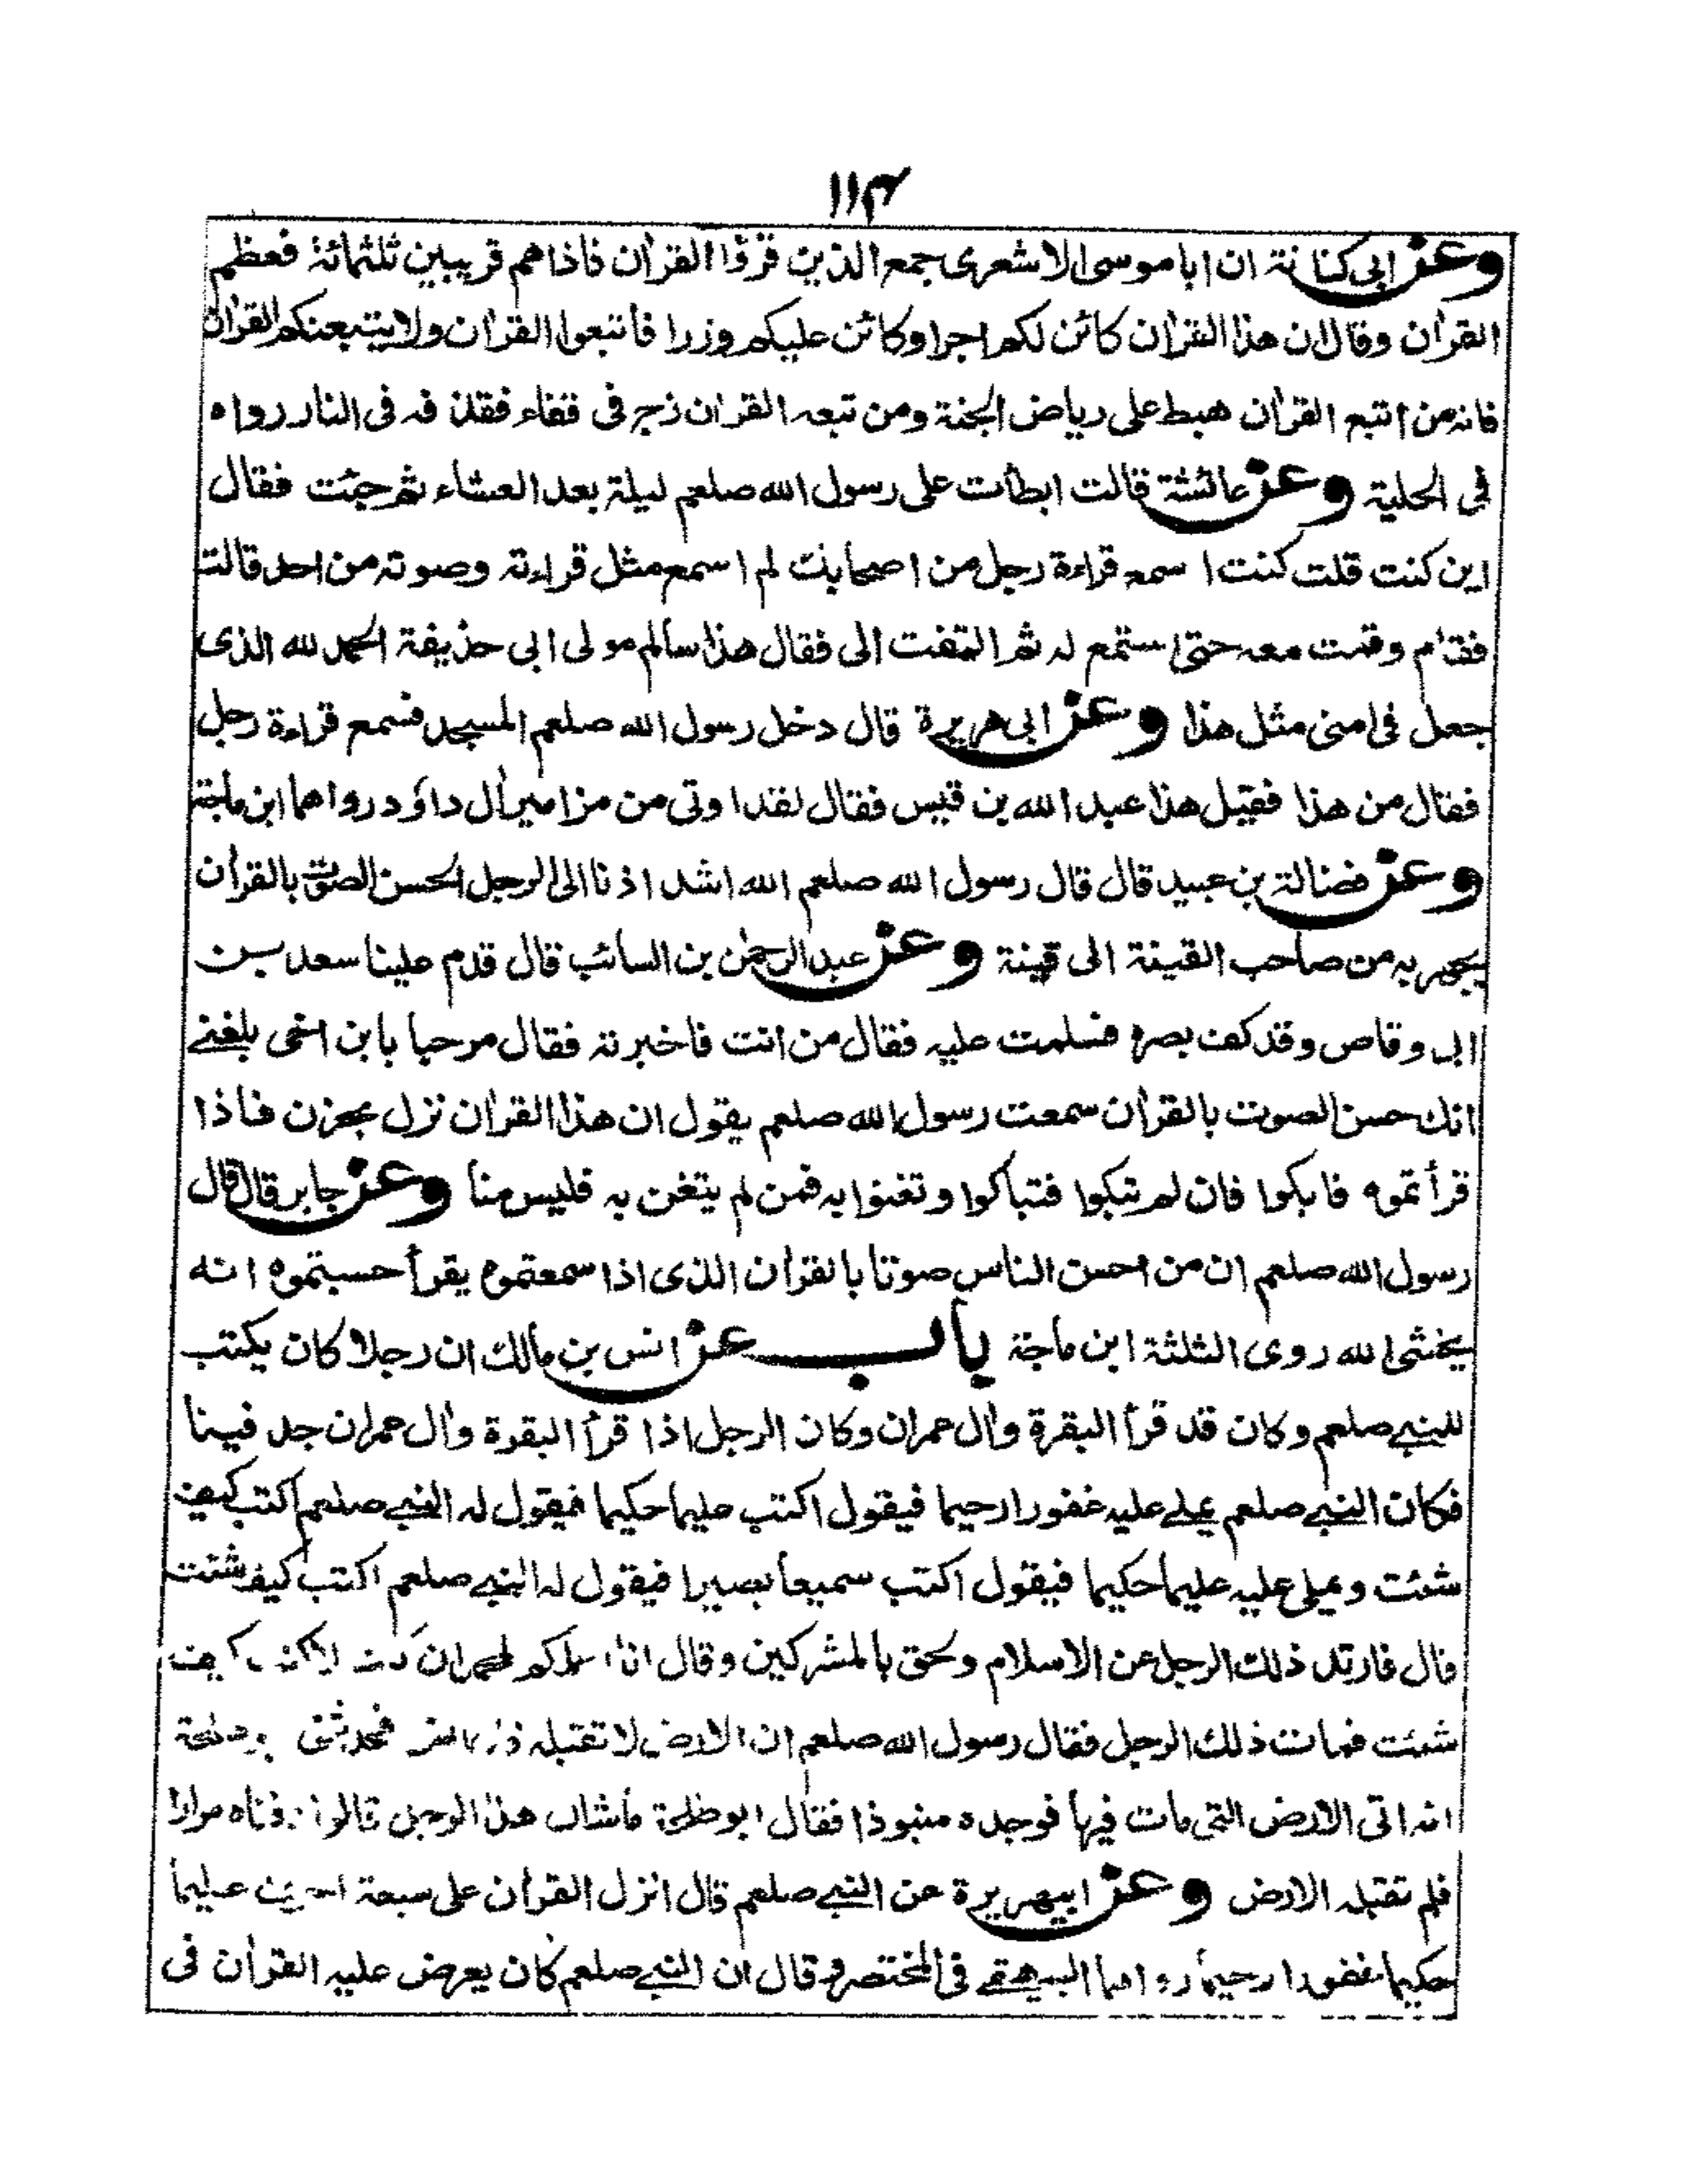 ١١٤
وعن ابى كنانة ان ابا موسى الاشعرى جمع الذين قرؤا القرآن فاذا هم قريبين ثلثمائة فعظم
القرآن وقال ان هذا القرآن كائن لكم اجرا وكائن عليكم وزرا فاتبعوا القرآن ولا يتبعنكم القرآن
فانه من اتبع القرآن هبط على رياض الجنة ومن تبعه القرآن زج فى قفاء فقذفه فى النار رواه
فى الحلية وعن عائشة قالت ابطأت على رسول الله صلعم ليلة بعد العشاء ثم جئت فقال
اين كنت قلت كنت اسمع قراءة رجل من اصحابك لم اسمع مثل قراءته وصوته من احد قالت
فقام وقمت معه حتى استمع له ثم التفت الى فقال هذا سالم مولى ابى حذيفة الحمد لله الذى
جعل فى امتى مثل هذا وعن ابى هريرة قال دخل رسول الله صلعم المسجد فسمع قراءة رجل
فقال من هذا فقيل هذا عبد الله بن قيس فقال لقد اوتى من مزامير آل داؤد رواهما ابن ماجة
وعن فضالة بن عبيد قال قال رسول الله صلعم الله اشد اذنا الى الرجل الحسن الصوت بالقرآن
يجهر به من صاحب القينة الى قينة وعن عبد الرحمٰن بن السائب قال قدم علينا سعد بن
ابى وقاص وقد كف بصره فسلمت عليه فقال من انت فاخبرته فقال مرحبا بابن اخى بلغنے
انك حسن الصوت بالقرآن سمعت رسول الله صلعم يقول ان هذا القرآن نزل بحزن فاذا
قرأتموه فابكوا فان لم تبكوا فتباكوا وتغنوا به فمن لم يتغن به فليس منا وعن جابر قال قال
رسول الله صلعم ان من احسن الناس صوتا بالقرآن الذى اذا سمعتموه يقرأ حسبتموه انه
يخشى الله روى الثلثة ابن ماجة باب عن انس بن مالك ان رجلا كان يكتب
للنبے صلعم وكان قد قرأ البقرة وآل عمران وكان الرجل اذا قرأ البقرة وآل عمران جد فينا
فكان النبے صلعم يملے عليه غفورا رحيما فيقول اكتب عليما حكيما فيقول له النبے صلعم اكتب كيف
شئت ويملى عليه عليما حكيما فيقول اكتب سميعا بصيرا فيقول له النبے صلعم اكتب كيف شئت
قال فارتد ذلك الرجل عن الاسلام ولحق بالمشركين وقال انا اعلمكم بمحمد ان كنت لاكتب كيف
شئت فمات ذلك الرجل فقال رسول الله صلعم ان الارض لا تقبله قال انس فحدثنى ابو طلحة
انه اتى الارض التى مات فيها فوجده منبوذا فقال ابو طلحة ما شان هذا الرجل قالوا دفناه مرارا
فلم تقبله الارض وعن ابيهريرة عن النبے صلعم قال انزل القرآن على سبعة احرف عليما
حكيما غفورا رحيما رواهما البيهقے فى المختصر وقال ان النبے صلعم كان يعرض عليه القرآن فى